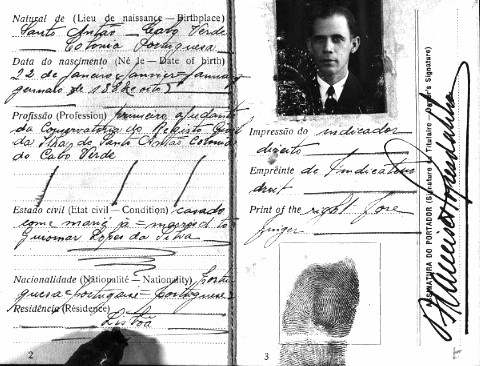 Natural de (Lieu de naissance — Birthplace)
Santo Antão — Cabo Verde
Colonia Portuguesa
Data do nascimento (Né le — Date of birth)
22 de janeiro = janvier = january
Profissão (Profession) primeiro ajudante
da Conservatoria do Registo Civil
da Ilha de Santo Antão Colonia
do Cabo Verde
Estado civil (Etat civil — Condition) casado
com = marié à = married to
Guiomar Lopes da Silva
Nacionalidade (Nationalité — Nationality) Portu
guesa = portugaise = portuguese
Residência (Résidence)
Lisboa
2
Impressão do indicador
direito
Empreinte de l'indicateur
droit
Print of the right fore
finger
3
ASSINATURA DO PORTADOR (Signature du Titulaire — Owner's Signature)